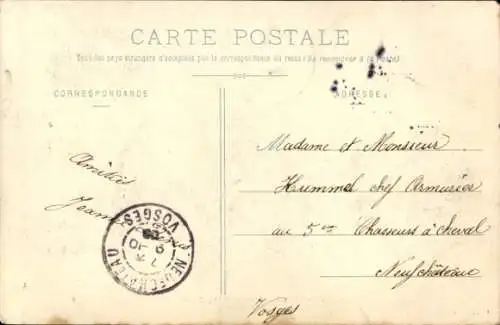 CARTE POSTALE
Tous les pays étrangers n'acceptent pas la correspondance au recto (Se renseigner à la Poste)
CORRESPONDANCE
ADRESSE
Amitiés
Jeanne
NEUFCHATEAU
VOSGES
Madame et Monsieur
Hummel chef Armurier
au 5me Chasseurs à cheval
Neufchâteau
Vosges